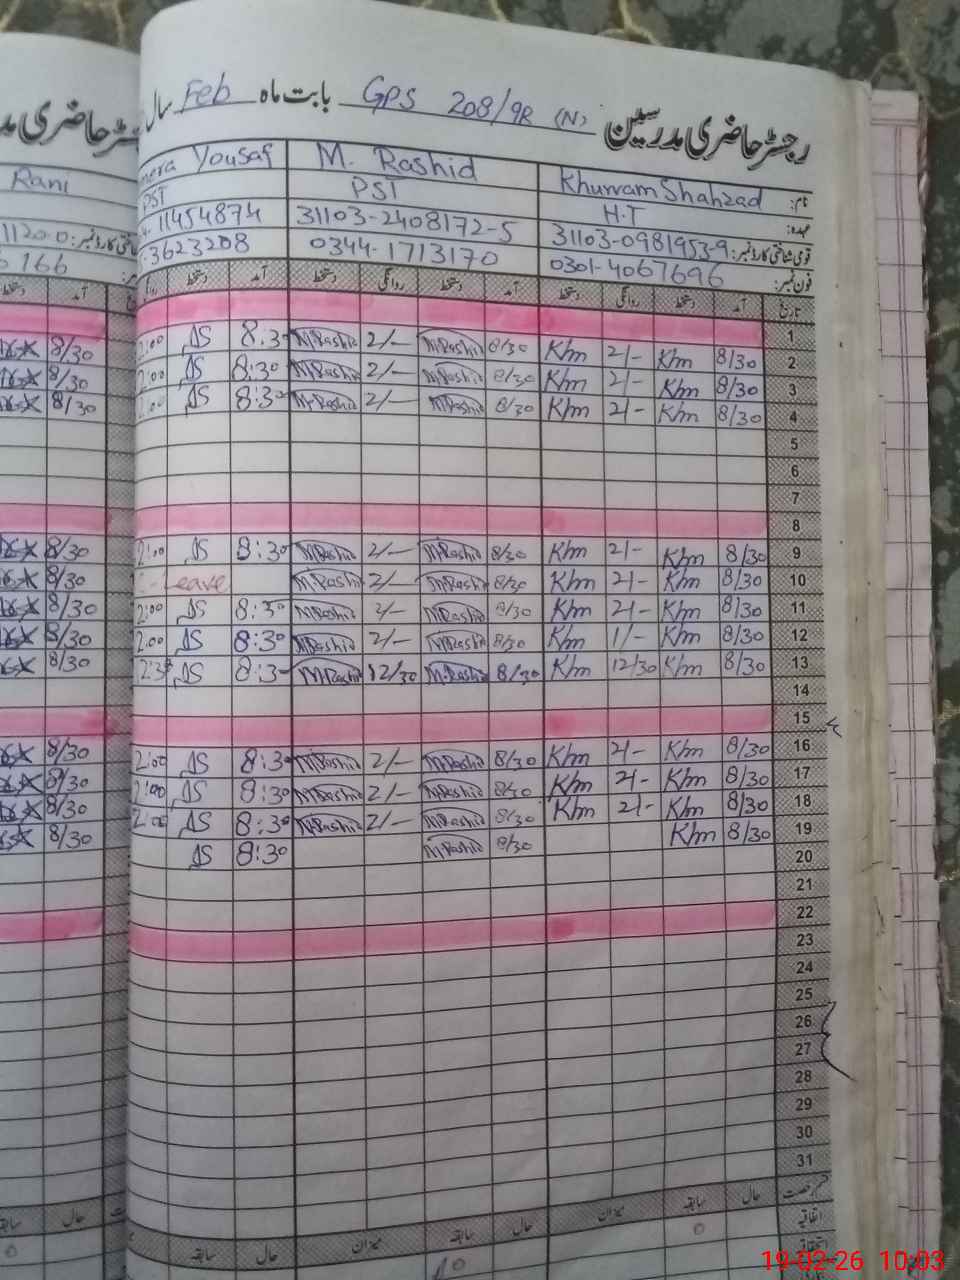 رجسٹر حاضری مدرسین GPS 208/9R (N) بابت ماہ Feb سال
نام: Khurram Shahzad M. Rashid Yousaf Rani
عہدہ: H.T PST PST
قومی شناختی کارڈ نمبر: 31103-0981953-9 31103-2408172-5 11454874
فون نمبر: 0301-4067696 0344-1713170 3623208 166
تاریخ آمد دستخط روانگی دستخط آمد دستخط روانگی دستخط آمد دستخط
1
2 8/30 Khm 2/- Khm 8/30 MRashid 2/- MRashid 8:30 AS 2:00 8/30
3 8/30 Khm 2/- Khm 8/30 MRashid 2/- MRashid 8:30 AS 2:00 8/30
4 8/30 Khm 2/- Khm 8/30 MRashid 2/- MRashid 8:30 AS 2:00 8/30
5
6
7
8
9 8/30 Khm 2/- Khm 8/30 MRashid 2/- MRashid 8:30 AS 2:00 8/30
10 8/30 Khm 2/- Khm 8/30 MRashid 2/- MRashid Leave 8/30
11 8/30 Khm 2/- Khm 8/30 MRashid 2/- MRashid 8:30 AS 2:00 8/30
12 8/30 Khm 1/- Khm 8/30 MRashid 2/- MRashid 8:30 AS 2:00 8/30
13 8/30 Khm 12/30 Khm 8/30 MRashid 12/30 MRashid 8:30 AS 8/30
14
15
16 8/30 Khm 2/- Khm 8/30 MRashid 2/- MRashid 8:30 AS 2:00 8/30
17 8/30 Khm 2/- Khm 8/30 MRashid 2/- MRashid 8:30 AS 2:00 8/30
18 8/30 Khm 2/- Khm 8/30 MRashid 2/- MRashid 8:30 AS 2:00 8/30
19 8/30 Khm 8/30 MRashid 8:30 AS 8/30
20
21
22
23
24
25
26
27
28
29
30
31
حال سابقہ میزان حال سابقہ میزان حال سابقہ حال
اتفاقیہ
19-02-26 10:03